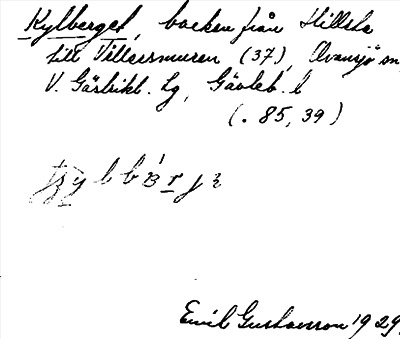 Kylberget, backen från Hillsta
till Tillersmuren (37), Ovansjö sn,
V. Gästrikl. tg, Gävleb. l
(. 85, 39)
Emil Gustavsson 1929